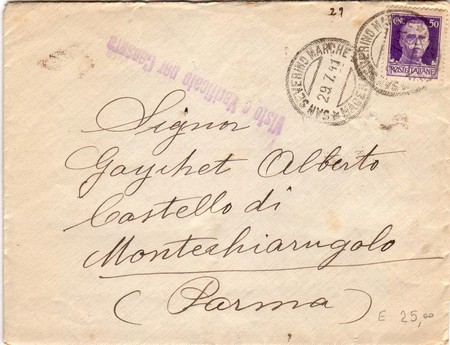 29
CENT. 50
POSTE ITALIANE
SAN SEVERINO MARCHE
29.7.41
Visto e Verificato per Censura
Signor
Gaychet Alberto
Castello di
Montechiarugolo
(Parma)
E 25,00